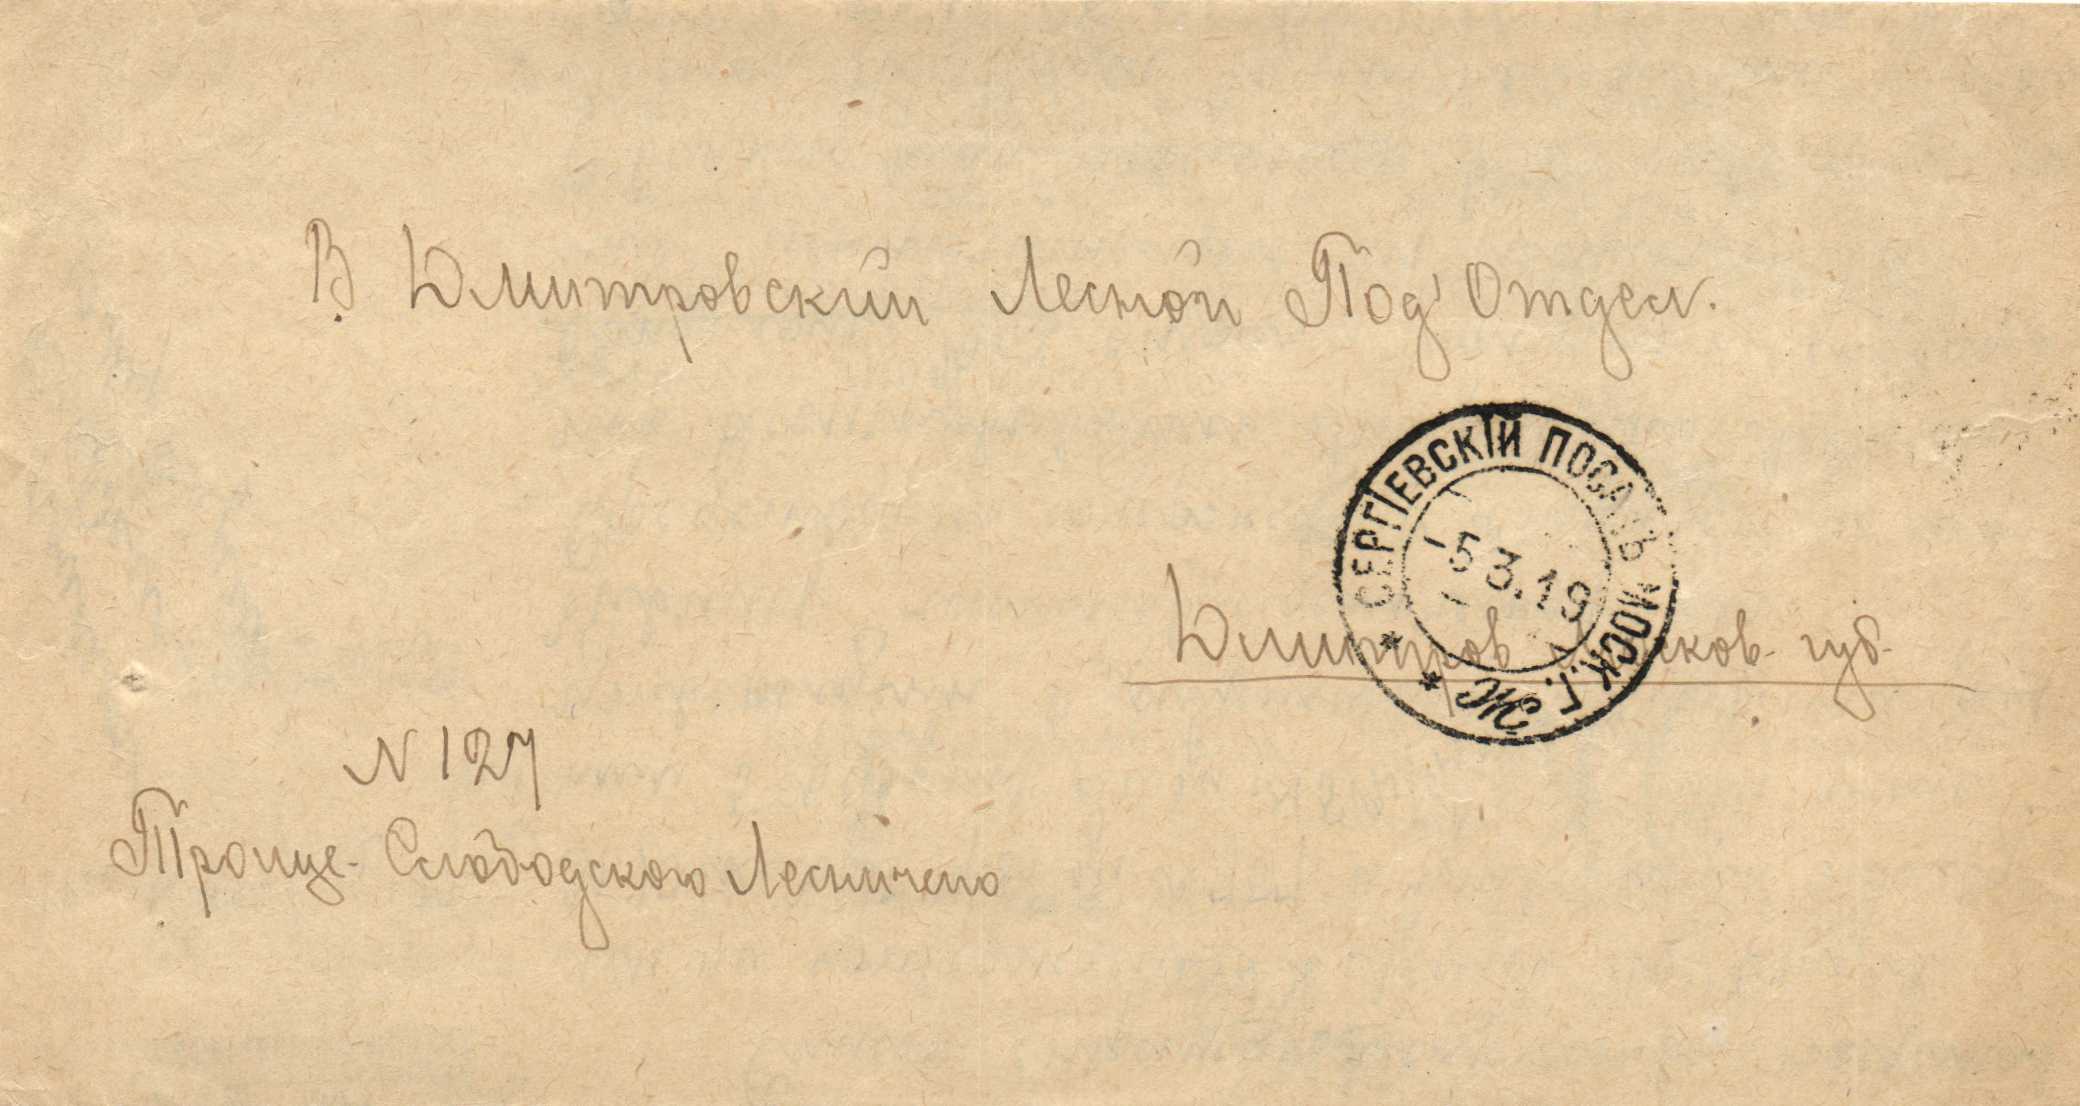 В Дмитровский Лесной Под'Отдел.
СЕРГІЕВСКІЙ ПОСАДЪ МОСК. Г. * Ж *
-5 3.19
Дмитров Москов. губ.
N 127
Троице-Слободского Лесничего